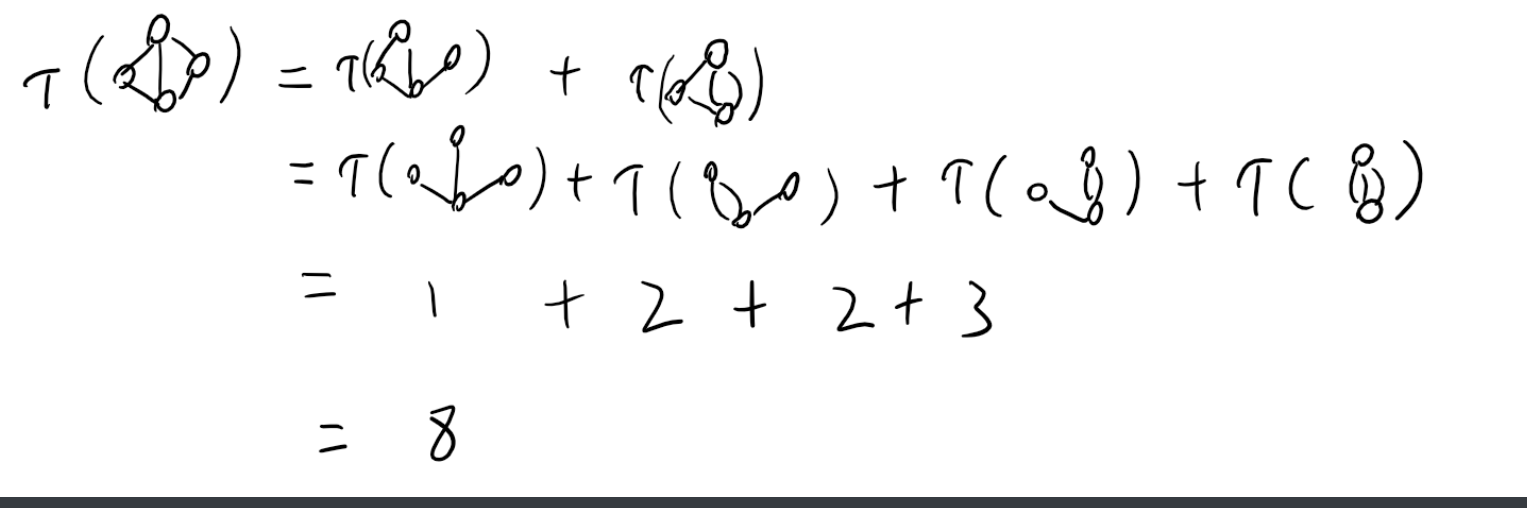 τ( ) = τ( ) + τ( )
= τ( ) + τ( ) + τ( ) + τ( )
= 1 + 2 + 2 + 3
= 8